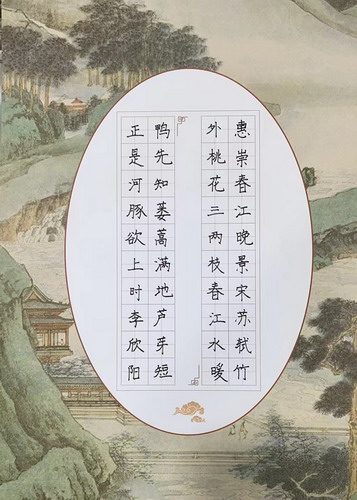 惠崇春江晚景宋苏轼竹
外桃花三两枝春江水暖
鸭先知蒌蒿满地芦芽短
正是河豚欲上时李欣阳